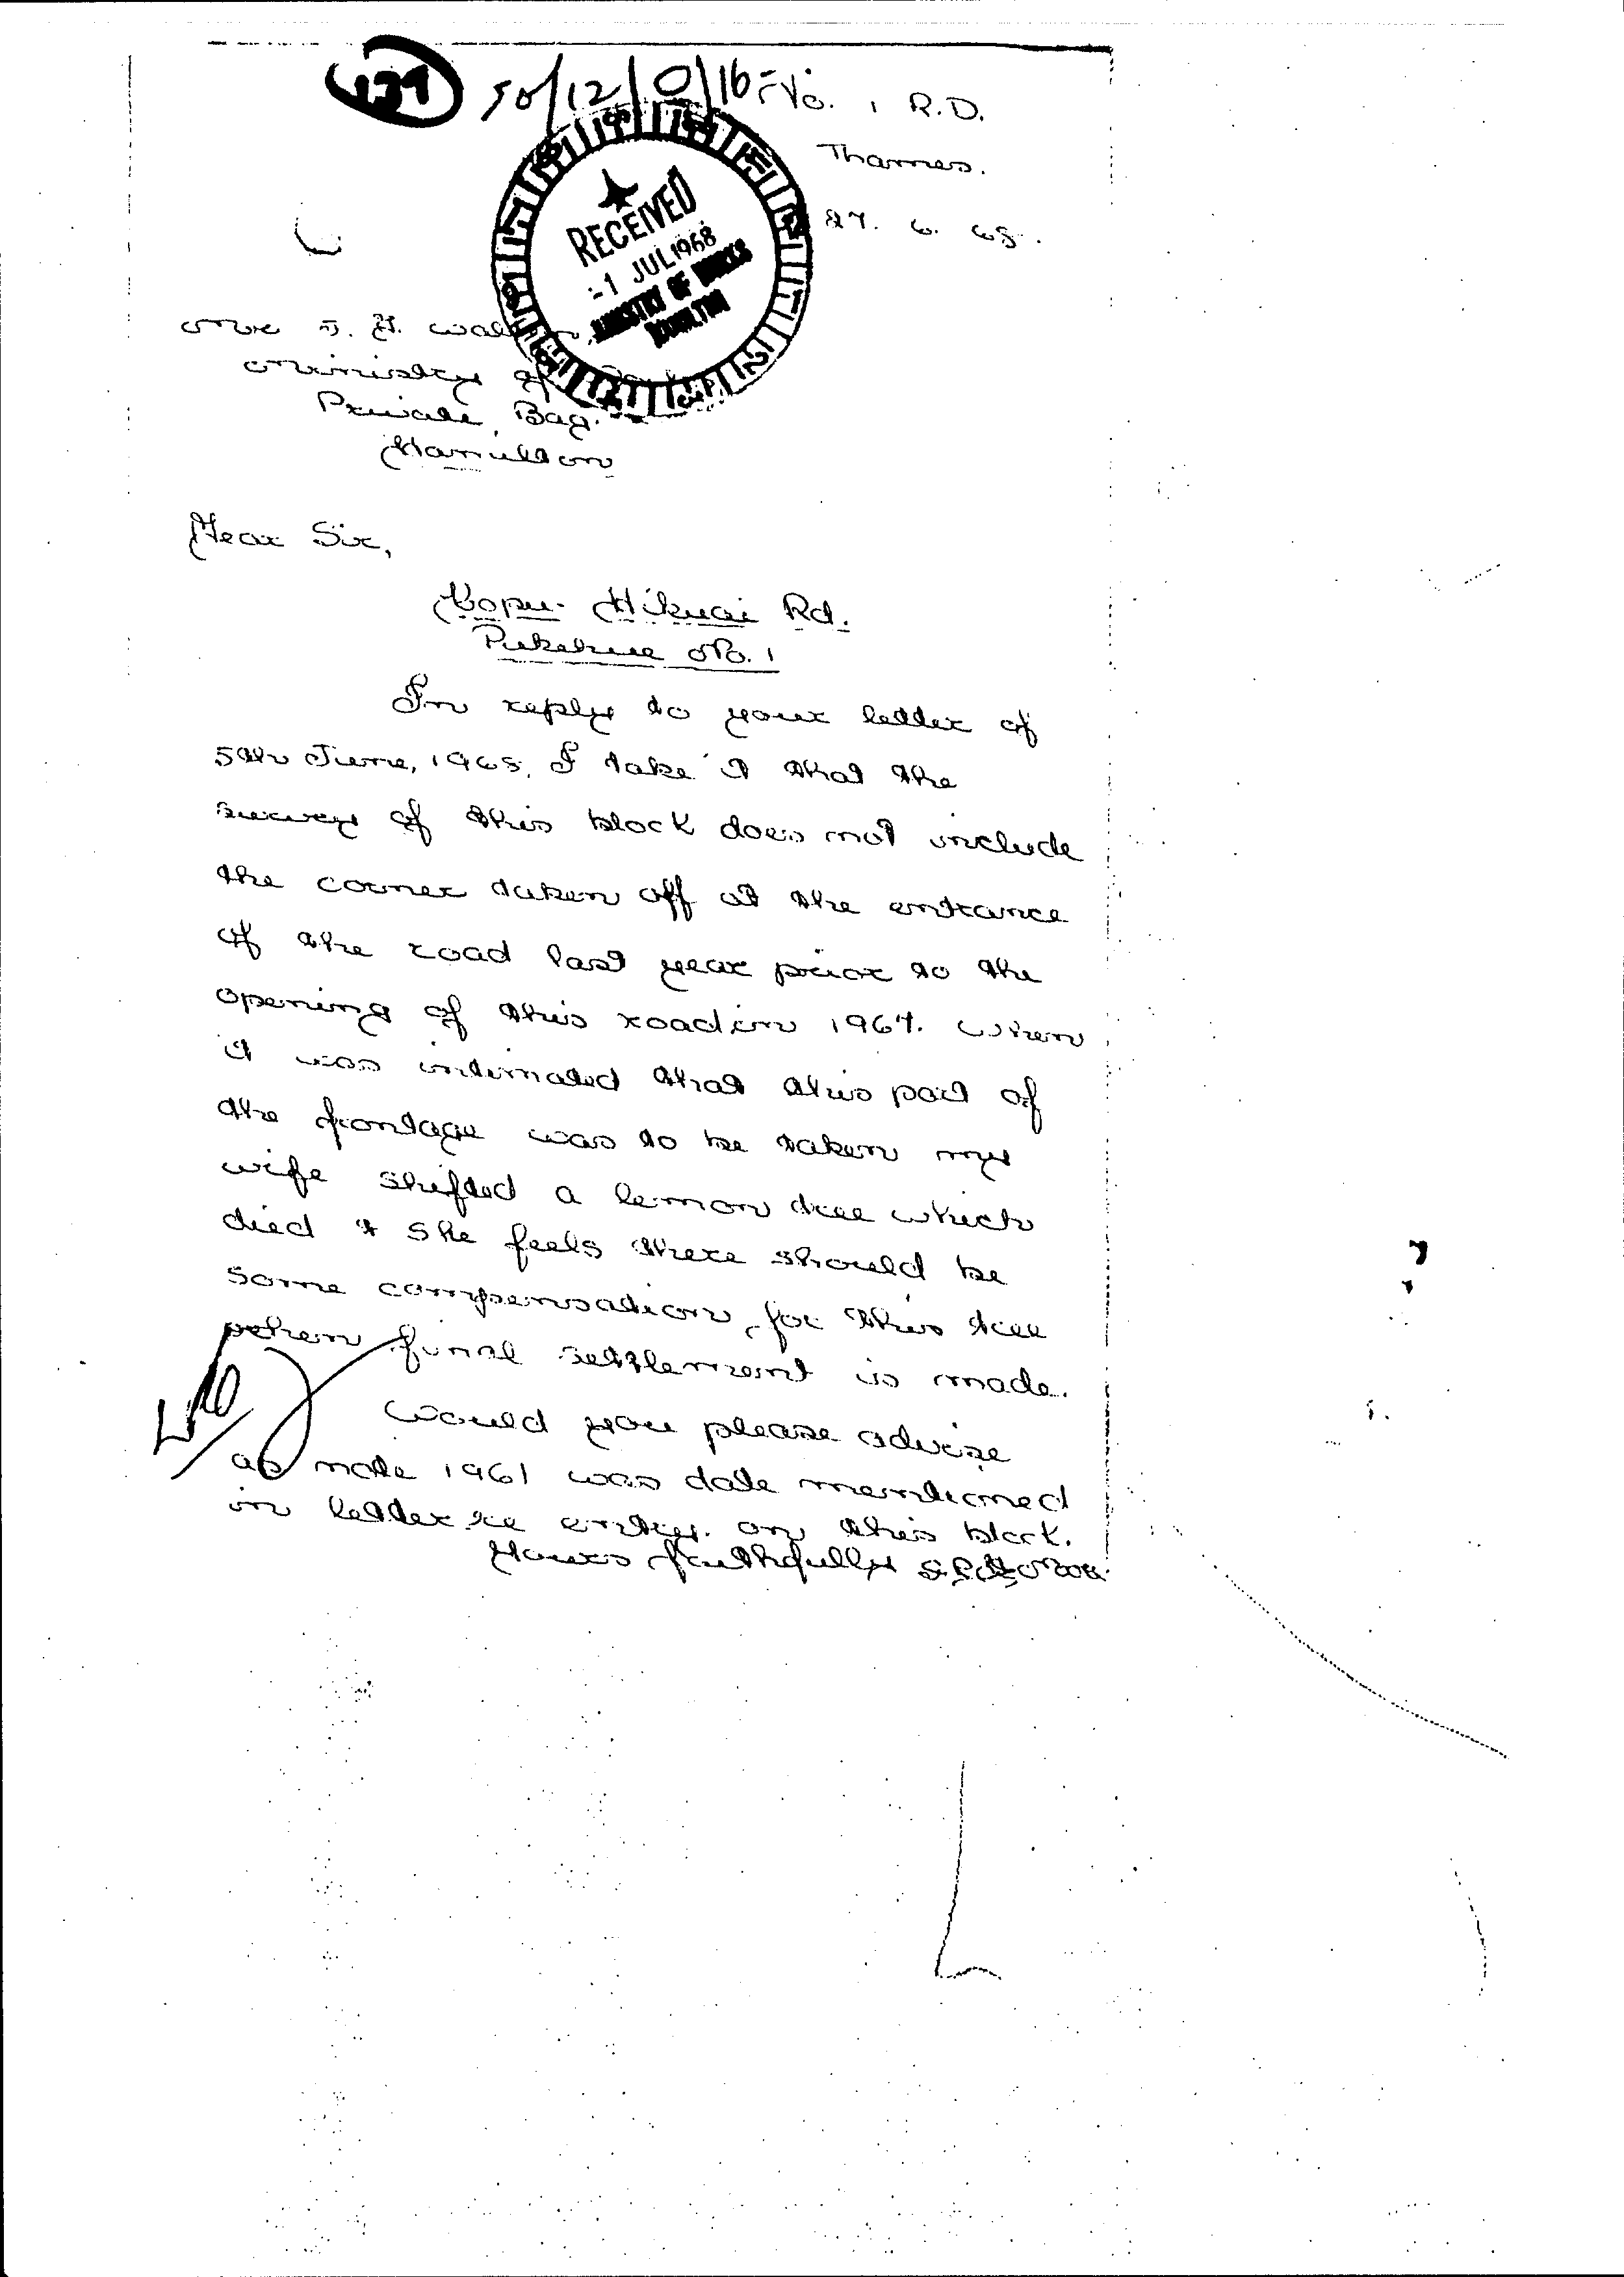 139 50/12/0/16 No. 1 R.D.
Thames.
27. 6. 68.
RECEIVED
-1 JUL 1968
MINISTRY OF WORKS
HAMILTON
Mr J. H.
Ministry of
Private Bag.
Hamilton
Dear Sir,
Kopu-Hikuai Rd.
Pukehue No. 1
In reply to your letter of
5th June, 1968, I take it that the
survey of this block does not include
the corner taken off at the entrance
of the road last year prior to the
opening of this road in 1967. When
it was intimated that this part of
the frontage was to be taken my
wife shifted a lemon tree which
died & she feels there should be
some compensation for this tree
when final settlement is made.
Would you please advise
as note 1961 was date mentioned
in letter re entry on this block.
Yours faithfully